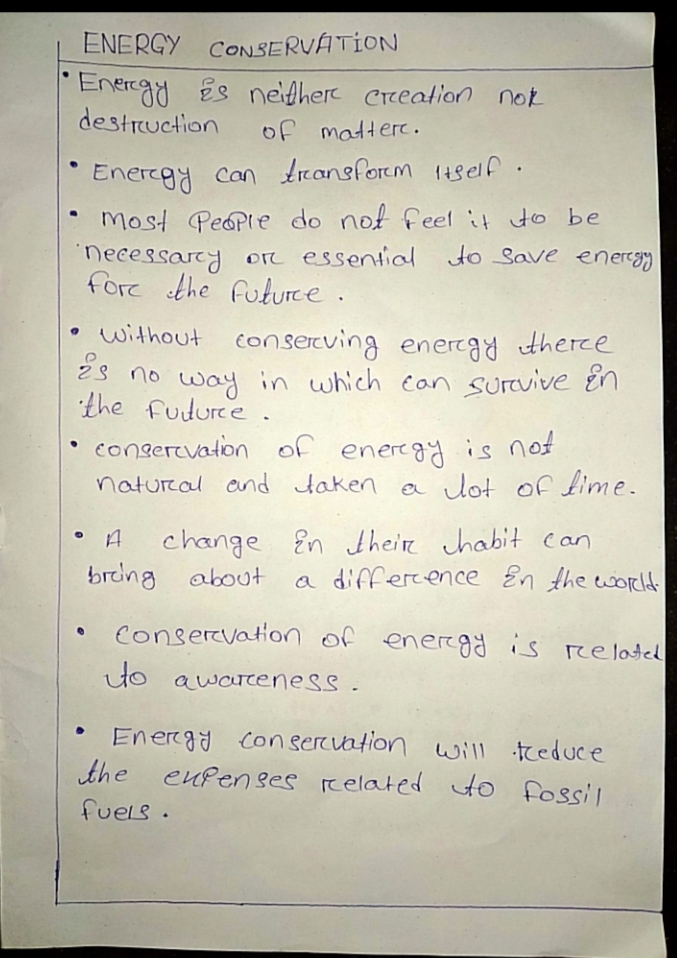 ENERGY CONSERVATION
• Energy is neither creation nor
destruction of matter.
• Energy can transform itself.
• most people do not feel it to be
necessary or essential to save energy
for the future.
• without conserving energy there
is no way in which can survive in
the fudure.
• conservation of energy is not
natural and taken a lot of time.
• A change in their habit can
bring about a difference in the world.
• conservation of energy is related
to awareness.
• Energy conservation will reduce
the expenses related to fossil
fuels.